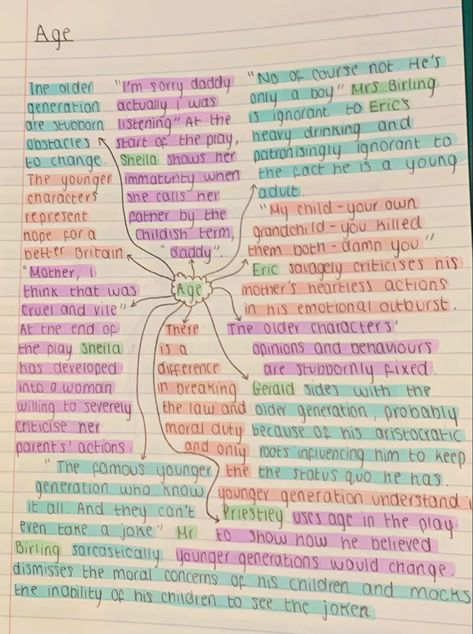 Age
The older
generation
are stubborn
obstacles
to change.
The younger
characters
represent
hope for a
better Britain
"I'm sorry daddy
actually I was
listening" At the
start of the play,
Sheila shows her
immaturity when
she calls her
father by the
childish term,
"daddy".
"No of course not. He's
only a boy" Mrs Birling
is ignorant to Eric's
heavy drinking and
patronisingly ignorant to
the fact he is a young
adult.
"My child - your own
grandchild - you killed
them both - damn you"
Eric savagely criticises his
mother's heartless actions
in his emotional outburst.
Age
"Mother, I
think that was
cruel and vile"
At the end of
the play Sheila
has developed
into a woman
willing to severely
criticise her
parents' actions
There
is a
difference
in breaking
the law and
moral duty
and only
the
younger generation understand
The older characters'
opinions and behaviours
are stubbornly fixed.
Gerald sides with the
older generation, probably
because of his aristocratic
roots influencing him to keep
the status quo he has.
"The famous younger
generation who know
it all. And they can't
even take a joke" Mr
Birling sarcastically
dismisses the moral concerns of his children and mocks
the inability of his children to see the joke.
Priestley uses age in the play
to show how he believed
younger generations would change.